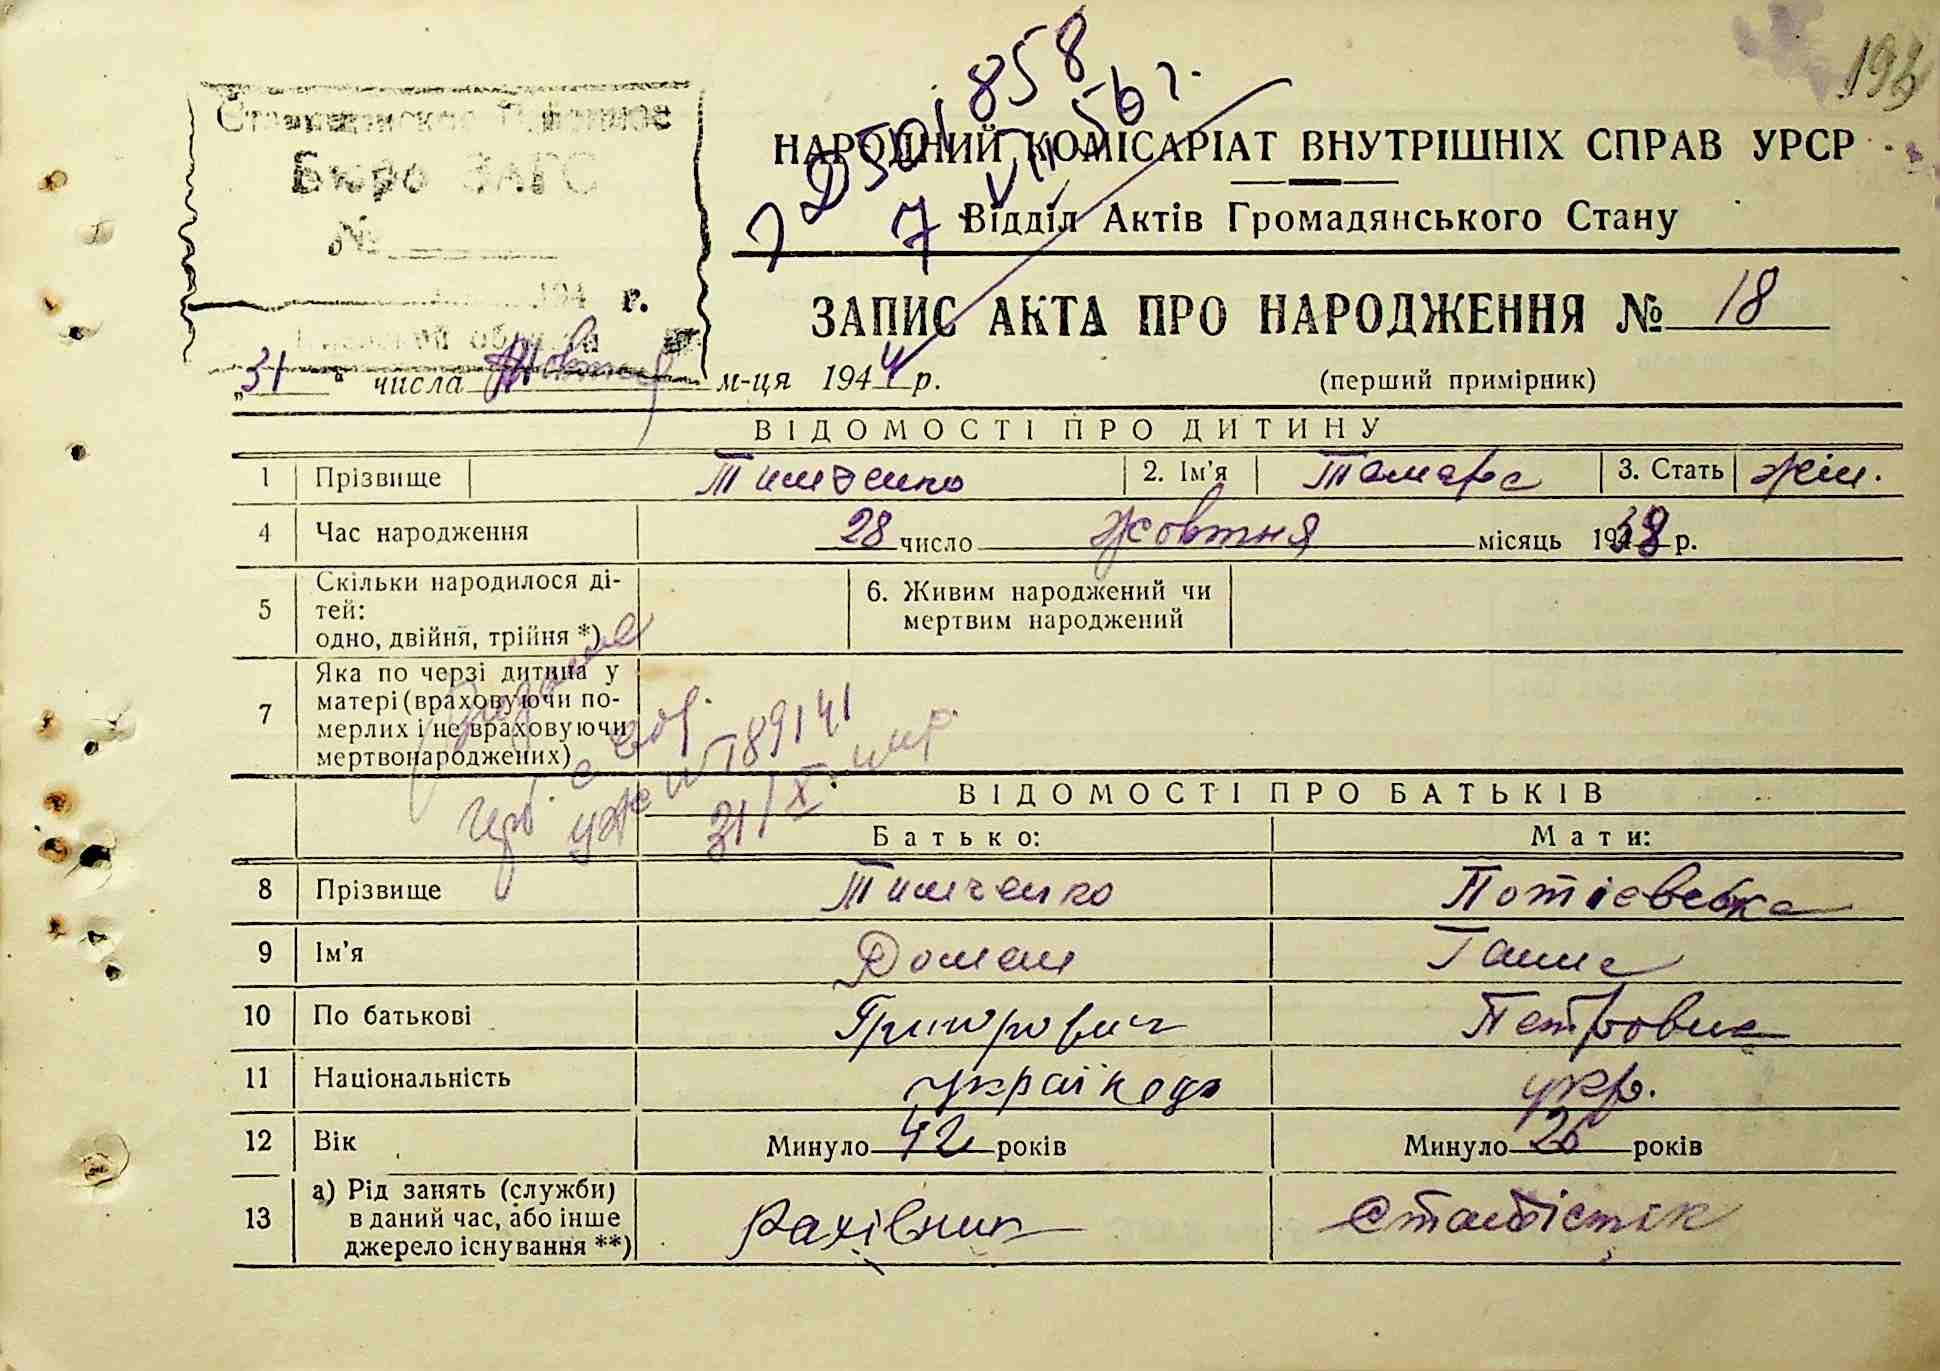 196
858
7 VIII 56 г.
Бюро ЗАГС
№
194 г.
НАРОДНИЙ КОМІСАРІАТ ВНУТРІШНІХ СПРАВ УРСР
Відділ Актів Громадянського Стану
ЗАПИС АКТА ПРО НАРОДЖЕННЯ № 18
„31“ числа Жовтня м-ця 1944 р.
(перший примірник)
ВІДОМОСТІ ПРО ДИТИНУ
1 Прізвище Тимченко 2. Ім'я Тамара 3. Стать жін.
4 Час народження 28 число жовтня місяць 1938 р.
5 Скільки народилося ді-
тей:
одно, двійня, трійня *)
6. Живим народжений чи
мертвим народжений
7 Яка по черзі дитина у
матері (враховуючи по-
мерлих і не враховуючи
мертвонароджених)
189141
31/X
ВІДОМОСТІ ПРО БАТЬКІВ
Батько: Мати:
8 Прізвище Тимченко Потієвська
9 Ім'я Роман Ганна
10 По батькові Григорович Петровна
11 Національність українець укр.
12 Вік Минуло 42 років Минуло 26 років
13 а) Рід занять (служби)
в даний час, або інше
джерело існування **)
Рахівник Статістік